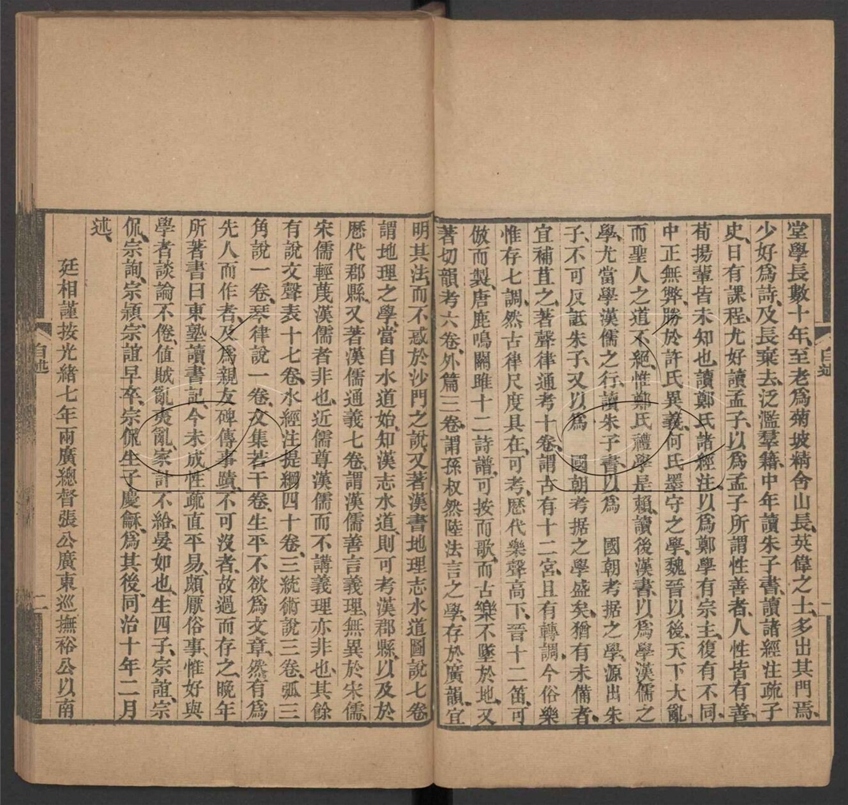 堂學長數十年、至老爲菊坡精舍山長、英偉之士、多出其門焉、
少好爲詩、及長棄去、泛濫羣籍、中年讀朱子書、讀諸經注疏子
史、日有課程、尤好讀孟子、以爲孟子所謂性善者、人性皆有善、
荀揚輩皆未知也、讀鄭氏諸經注、以爲鄭學有宗主、復有不同、
中正無弊、勝於許氏異義、何氏墨守之學、魏晉以後、天下大亂、
而聖人之道不絕、惟鄭氏禮學是賴、讀後漢書、以爲學漢儒之
學、尤當學漢儒之行、讀朱子書、以爲 國朝考据之學、源出朱
子、不可反詆朱子、又以爲 國朝考据之學盛矣、猶有未備者、
宜補苴之、著聲律通考十卷、謂古有十二宮、且有轉調、今俗樂
惟存七調、然古律尺度具在、可考歷代樂聲高下、晉十二笛、可
倣而製、唐鹿鳴關雎十二詩譜、可按而歌、而古樂不墜於地、又
著切韻考六卷、外篇三卷、謂孫叔然陸法言之學、存於廣韻、宜
明其法、而不惑於沙門之說、又著漢書地理志水道圖說七卷、
謂地理之學、當自水道始、知漢志水道、則可考漢郡縣、以及於
歷代郡縣、又著漢儒通義七卷、謂漢儒善言義理、無異於宋儒、
宋儒輕蔑漢儒者非也、近儒尊漢儒而不講義理、亦非也、其餘
有說文聲表十七卷、水經注提綱四十卷、三統術說三卷、弧三
角說一卷、琴律說一卷、文集若干卷、生平不欲爲文章、然有爲
先人而作者、及爲親友碑傳事蹟不可沒者、故過而存之、晚年
所著書曰東塾讀書記、今未成、性疏直平易、頗厭俗事、惟好與
學者談論不倦、值賊亂夷亂、家計不給、晏如也、生四子、宗誼、宗
侃、宗詢、宗潁、宗誼早卒、宗侃生子慶龢、爲其後、同治十年二月
述、
廷相謹按光緒七年兩廣總督張公廣東巡撫裕公以南
自述
一
自述
二